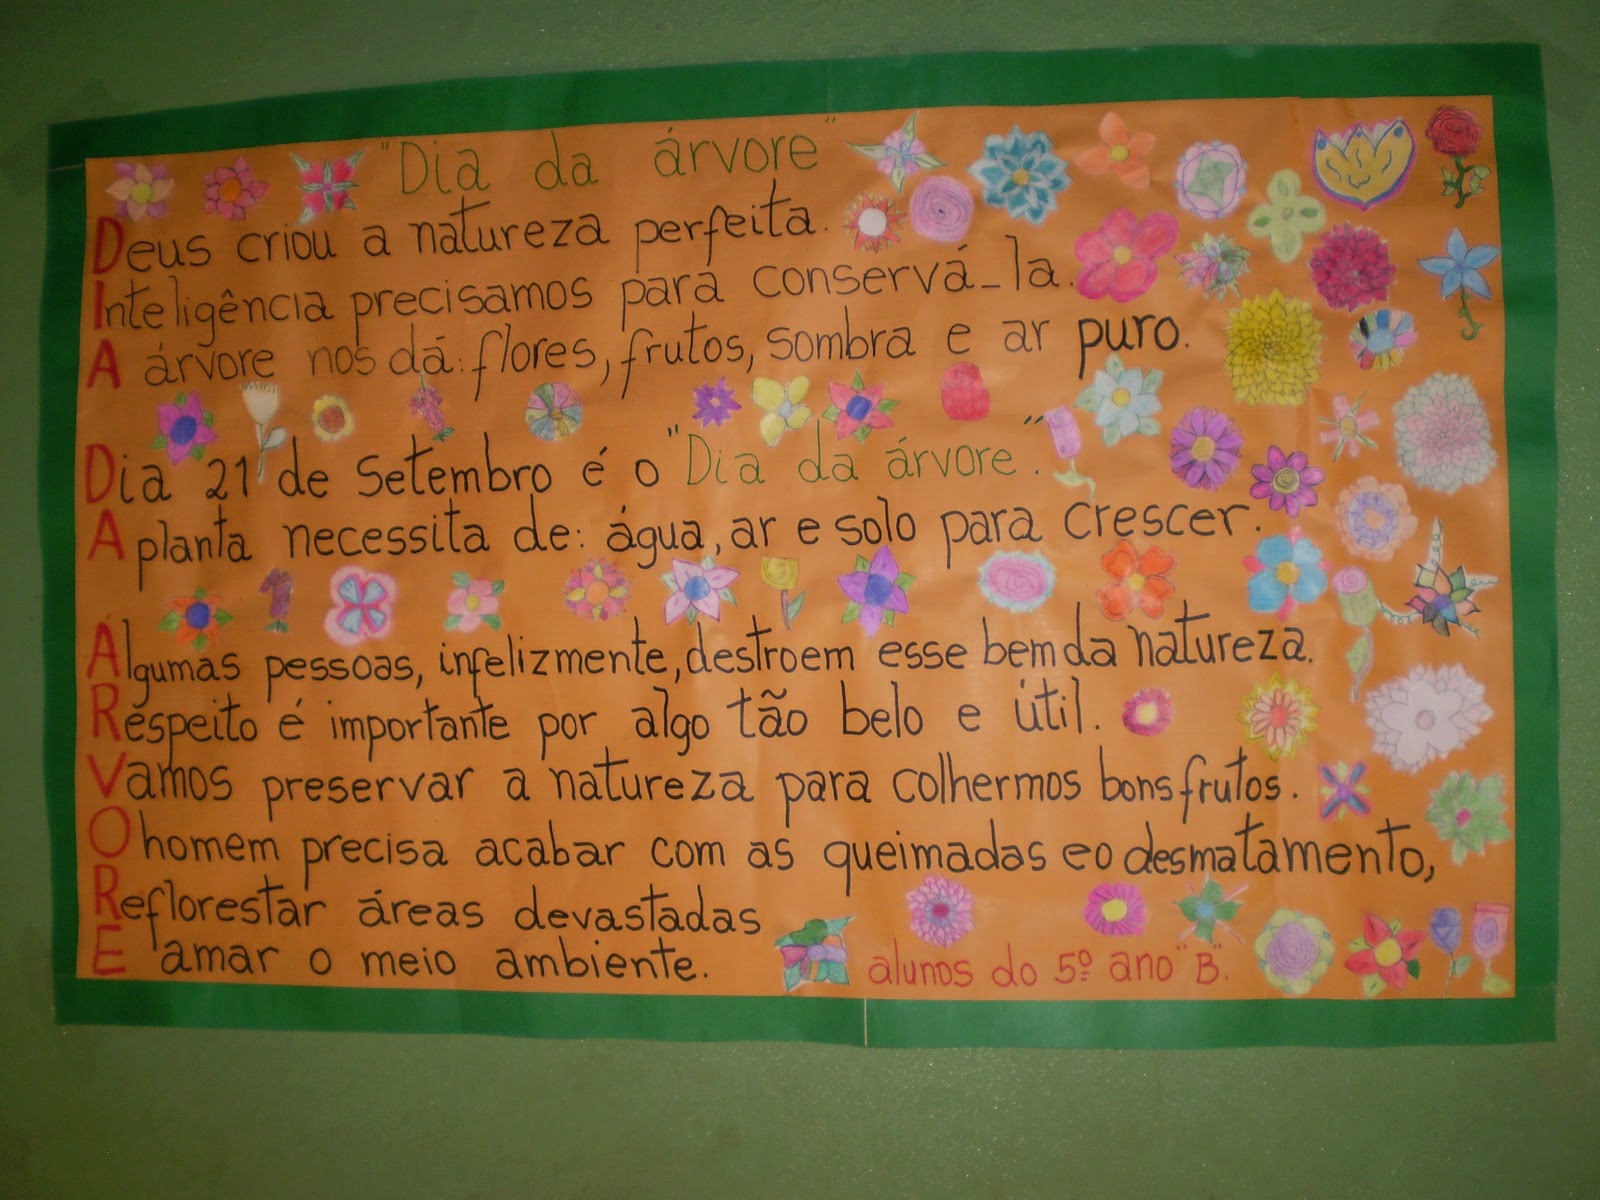 "Dia da árvore"
Deus criou a natureza perfeita.
Inteligência precisamos para conservá-la.
A árvore nos dá: flores, frutos, sombra e ar puro.
Dia 21 de Setembro é o "Dia da árvore".
A planta necessita de: água, ar e solo para crescer.
Algumas pessoas, infelizmente, destroem esse bem da natureza.
Respeito é importante por algo tão belo e útil.
Vamos preservar a natureza para colhermos bons frutos.
O homem precisa acabar com as queimadas e o desmatamento,
Reflorestar áreas devastadas
E amar o meio ambiente.
alunos do 5º ano "B".